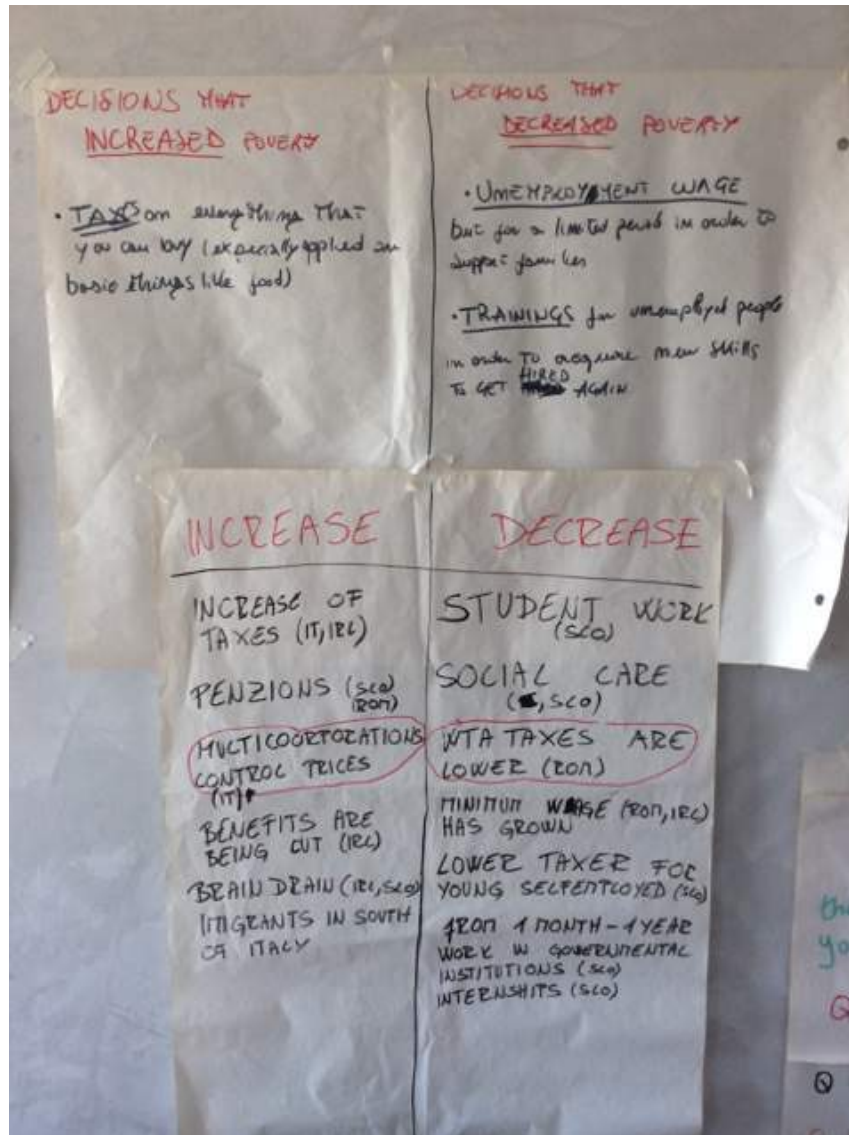 DECISIONS THAT
INCREASED POVERTY
• TAXS on everything that
you can buy (expecially applied on
basic things like food)
DECISIONS THAT
DECREASED POVERTY
• UMEMPLOYMENT WAGE
but for a limited period in order to
support families
• TRAININGS for unemployed people
in order to acquire new skills
HIRED
To GET AGAIN
INCREASE
INCREASE OF
TAXES (IT, IRL)
PENZIONS (SLO)
(ROM)
MULTICOORTORATIONS
CONTROL PRICES
(IT)
BENEFITS ARE
BEING CUT (IRL)
BRAIN DRAIN (IRL, SLO)
IMIGRANTS IN SOUTH
OF ITALY
DECREASE
STUDENT WORK
(SLO)
SOCIAL CARE
(, SLO)
WTA TAXES ARE
LOWER (ROM)
MINIMUM WAGE (ROM, IRL)
HAS GROWN
LOWER TAXER FOR
YOUNG SELFEMPLOYED (SLO)
FROM 1 MONTH - 1 YEAR
WORK IN GOVERNMENTAL
INSTITUTIONS (SLO)
INTERNSHIPS (SLO)
Q
Q